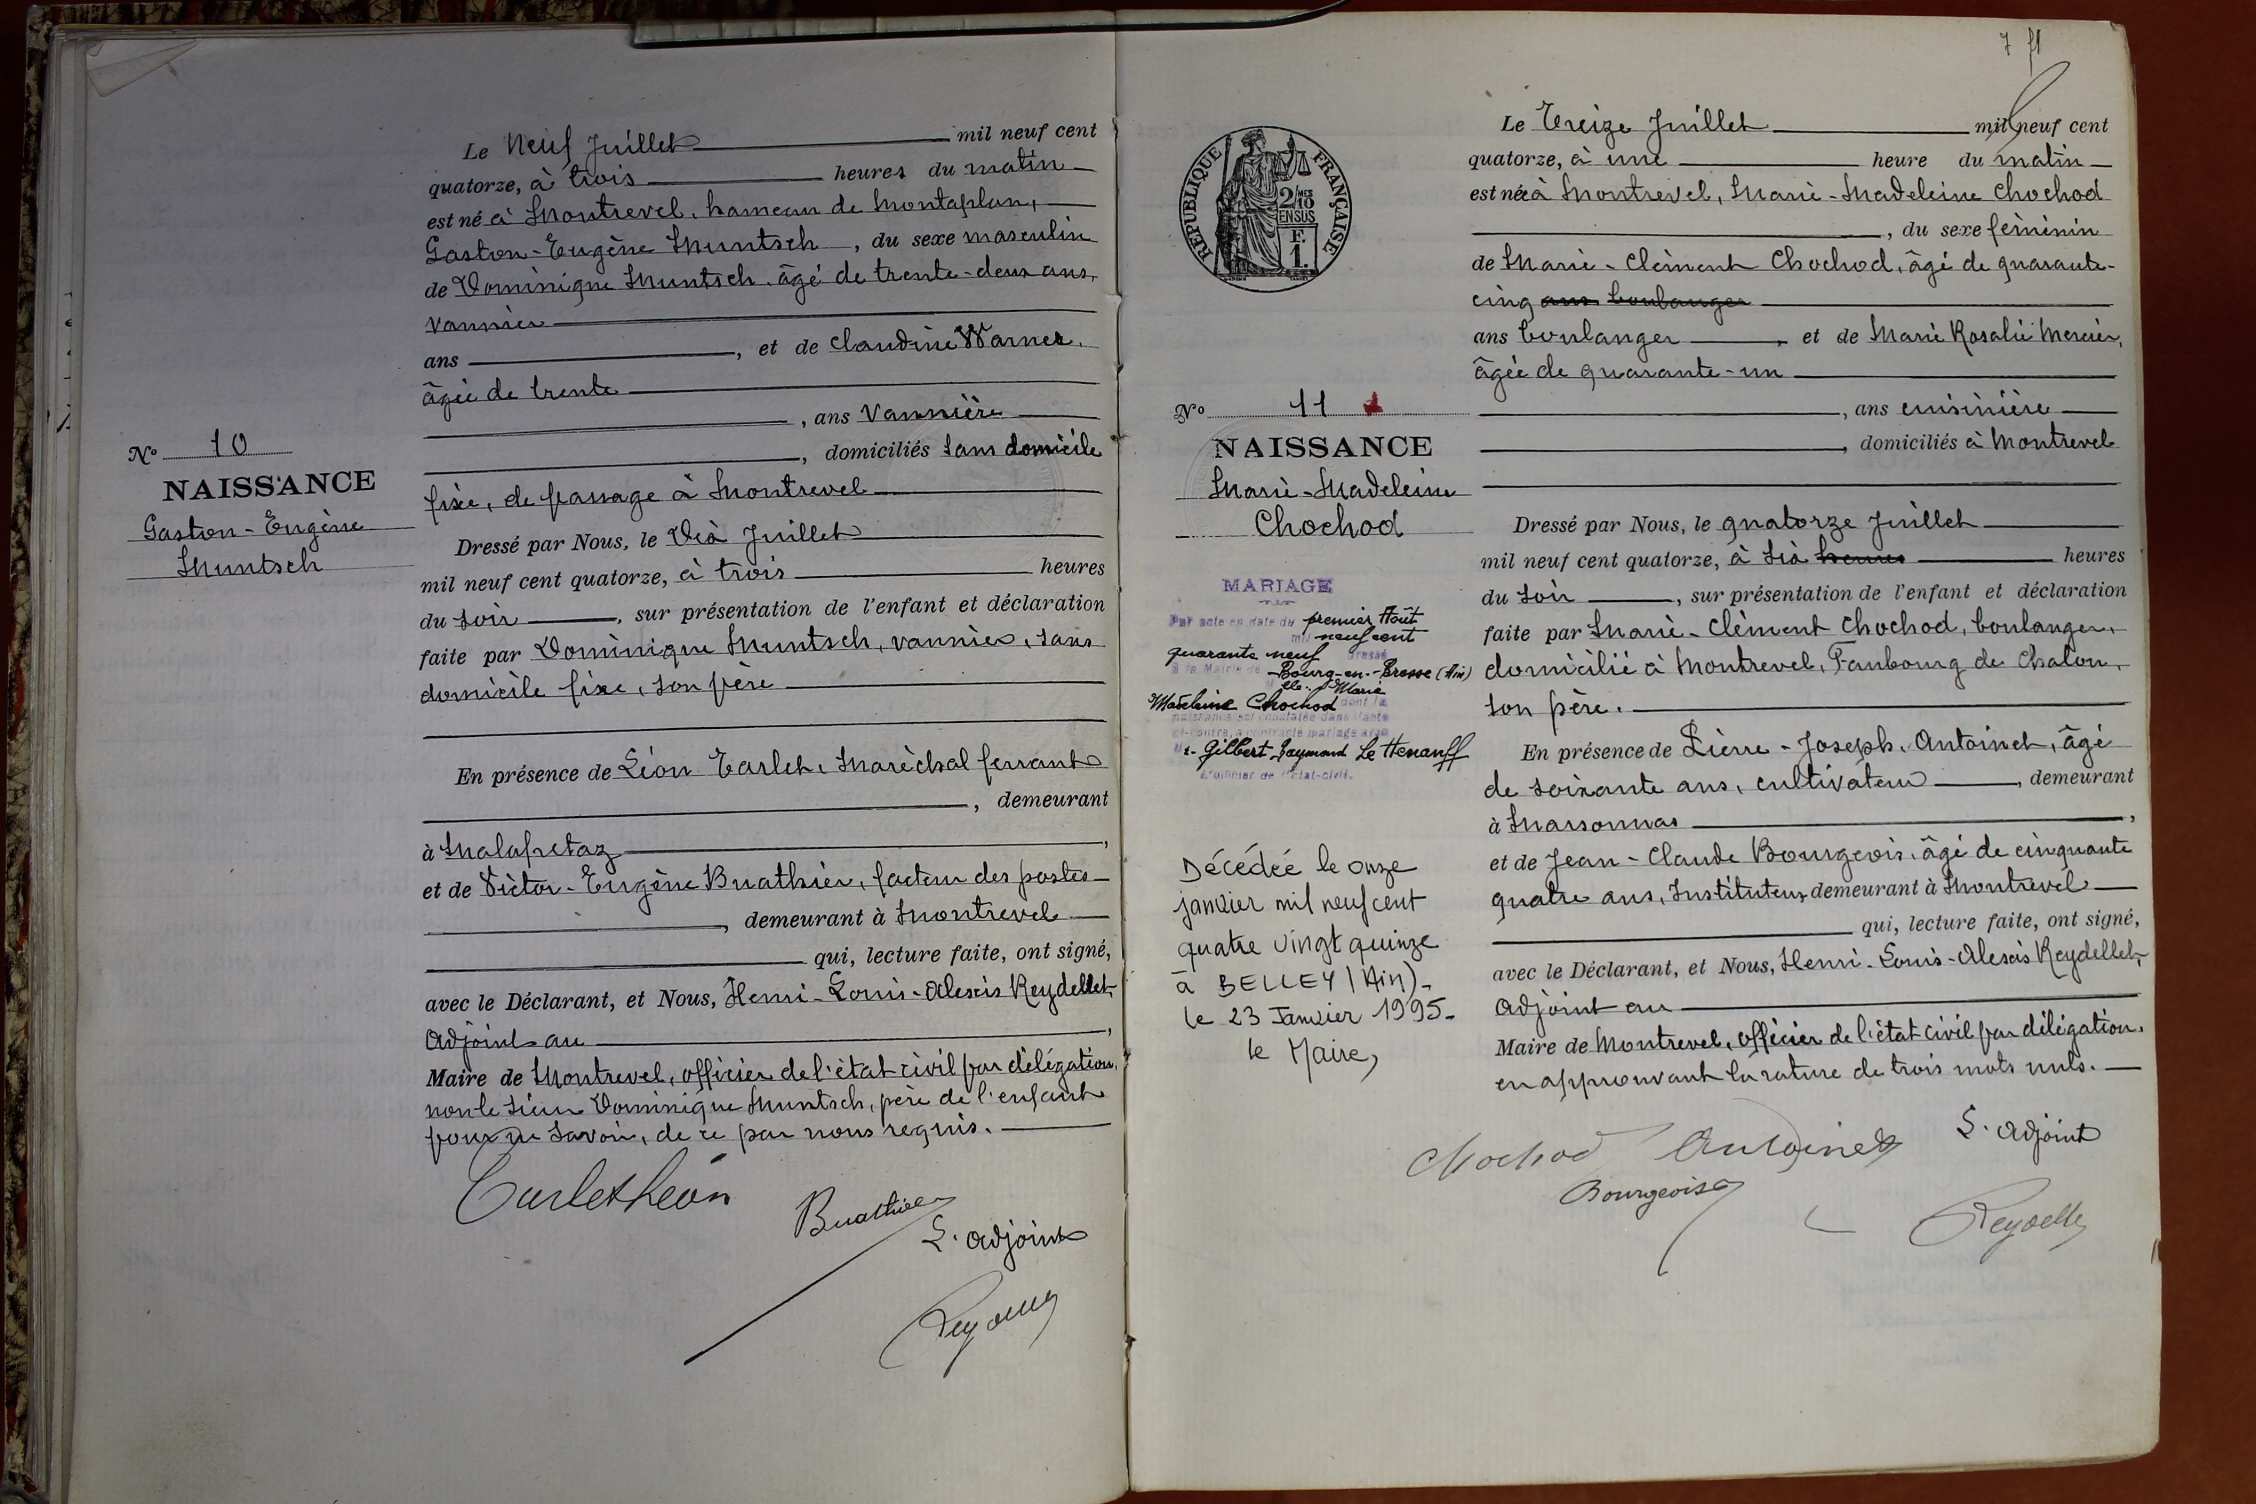 Le Neuf Juillet mil neuf cent
quatorze, à trois heures du matin
est né à Montrevel, hameau de Montaplan,
Gaston-Eugène Muntsch, du sexe masculin
de Dominique Muntsch, âgé de trente-deux ans,
vannier
ans, et de Claudine Warner,
âgée de trente
, ans vannière
, domiciliés sans domicile
fixe, de passage à Montrevel
No 10
NAISSANCE
Gaston-Eugène
Muntsch
Dressé par Nous, le Dix Juillet
mil neuf cent quatorze, à trois heures
du soir, sur présentation de l'enfant et déclaration
faite par Dominique Muntsch, vannier, sans
domicile fixe, son père
En présence de Léon Tarlet, Maréchal ferrant
, demeurant
à Malafretaz,
et de Victor-Eugène Buathier, facteur des postes
, demeurant à Montrevel
qui, lecture faite, ont signé,
avec le Déclarant, et Nous, Henri-Louis-Alexis Reydellet,
Adjoint au,
Maire de Montrevel, officier de l'état civil par délégation,
non le sieur Dominique Muntsch, père de l'enfant
pour ne savoir, de ce par nous requis.
Tarlet Léon
Buathier
L'adjoint
7 f1
Le Treize Juillet mil neuf cent
quatorze, à une heure du matin
est née à Montrevel, Marie-Madeleine Chochod
, du sexe féminin
de Marie-Clément Chochod, âgé de quarante-
cinq ans boulanger
ans boulanger, et de Marie Rosalie Mercier,
âgée de quarante-un
, ans cuisinière
, domiciliés à Montrevel
RÉPUBLIQUE FRANÇAISE
2/10 MES
EN SUS
F.
1.
No 11
NAISSANCE
Marie-Madeleine
Chochod
MARIAGE
Par acte en date du premier Août
mil neuf cent
quarante neuf dressé
à la Mairie de Bourg-en-Bresse (Ain)
Elle. Marie
Madeleine Chochod dont la
naissance est constatée dans l'acte
ci-contre, a contracté mariage avec
Gilbert Raymond Le Henanff
L'officier de l'état-civil.
Décédée le onze
janvier mil neuf cent
quatre vingt quinze
à BELLEY (Ain)-
le 23 Janvier 1995-
le Maire,
Dressé par Nous, le quatorze Juillet
mil neuf cent quatorze, à six heures heures
du soir, sur présentation de l'enfant et déclaration
faite par Marie-Clément Chochod, boulanger,
domicilié à Montrevel, Faubourg de Chalon,
son père.
En présence de Pierre-Joseph Antoinet, âgé
de soixante ans, cultivateur, demeurant
à Marsonnas,
et de Jean-Claude Bourgeois, âgé de cinquante
quatre ans, Instituteur, demeurant à Montrevel
qui, lecture faite, ont signé,
avec le Déclarant, et Nous, Henri-Louis-Alexis Reydellet,
Adjoint au
Maire de Montrevel, officier de l'état civil par délégation.
en approuvant la rature de trois mots nuls.
Chochod Antoinet L'adjoint
Bourgeois
Reydellet